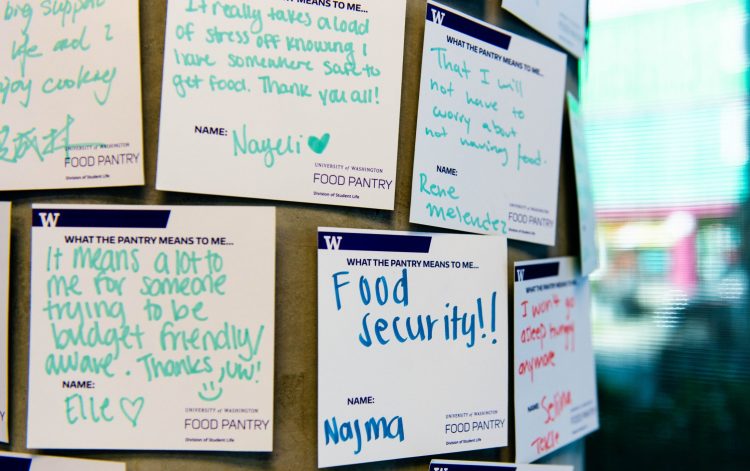 big support
life and ?
enjoy cooking
UNIVERSITY of WASHINGTON
FOOD PANTRY
Division of Student Life
PANTRY MEANS TO ME...
It really takes a load
of stress off knowing I
have somewhere safe to
get food. Thank you all!
NAME:
Nayeli
UNIVERSITY of WASHINGTON
FOOD PANTRY
Division of Student Life
W
WHAT THE PANTRY MEANS TO ME...
That I will
not have to
worry about
not having food.
NAME:
Rene
melendez
FOOD PANTRY
W
WHAT THE PANTRY MEANS TO ME...
It means a lot to
me for someone
trying to be
budget friendly/
aware. Thanks, UW!
NAME:
Elle
UNIVERSITY of WASHINGTON
FOOD PANTRY
Division of Student Life
W
WHAT THE PANTRY MEANS TO ME...
Food
security!!
NAME:
Najma
UNIVERSITY of WASHINGTON
FOOD PANTRY
Division of Student Life
W
WHAT THE PANTRY MEANS TO ME...
I won't go
asleep hungry
anymore
NAME:
Selina
FOOD PANTRY
W
W